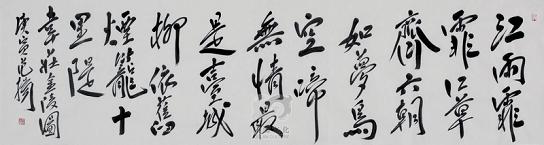 江雨霏
霏江草
齊六朝
如夢鳥
空啼
無情最
是臺城
柳依舊
煙籠十
里隄
韋莊金陵圖
庚寅